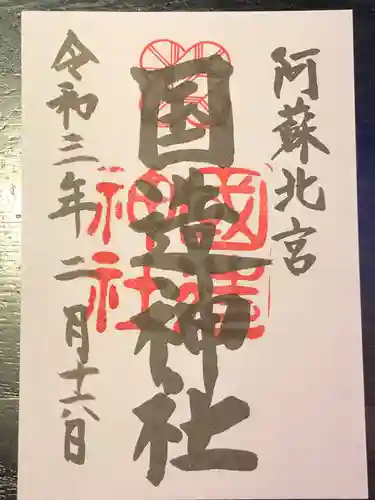 阿蘇北宮
国造神社
令和三年二月十六日
國造
神社